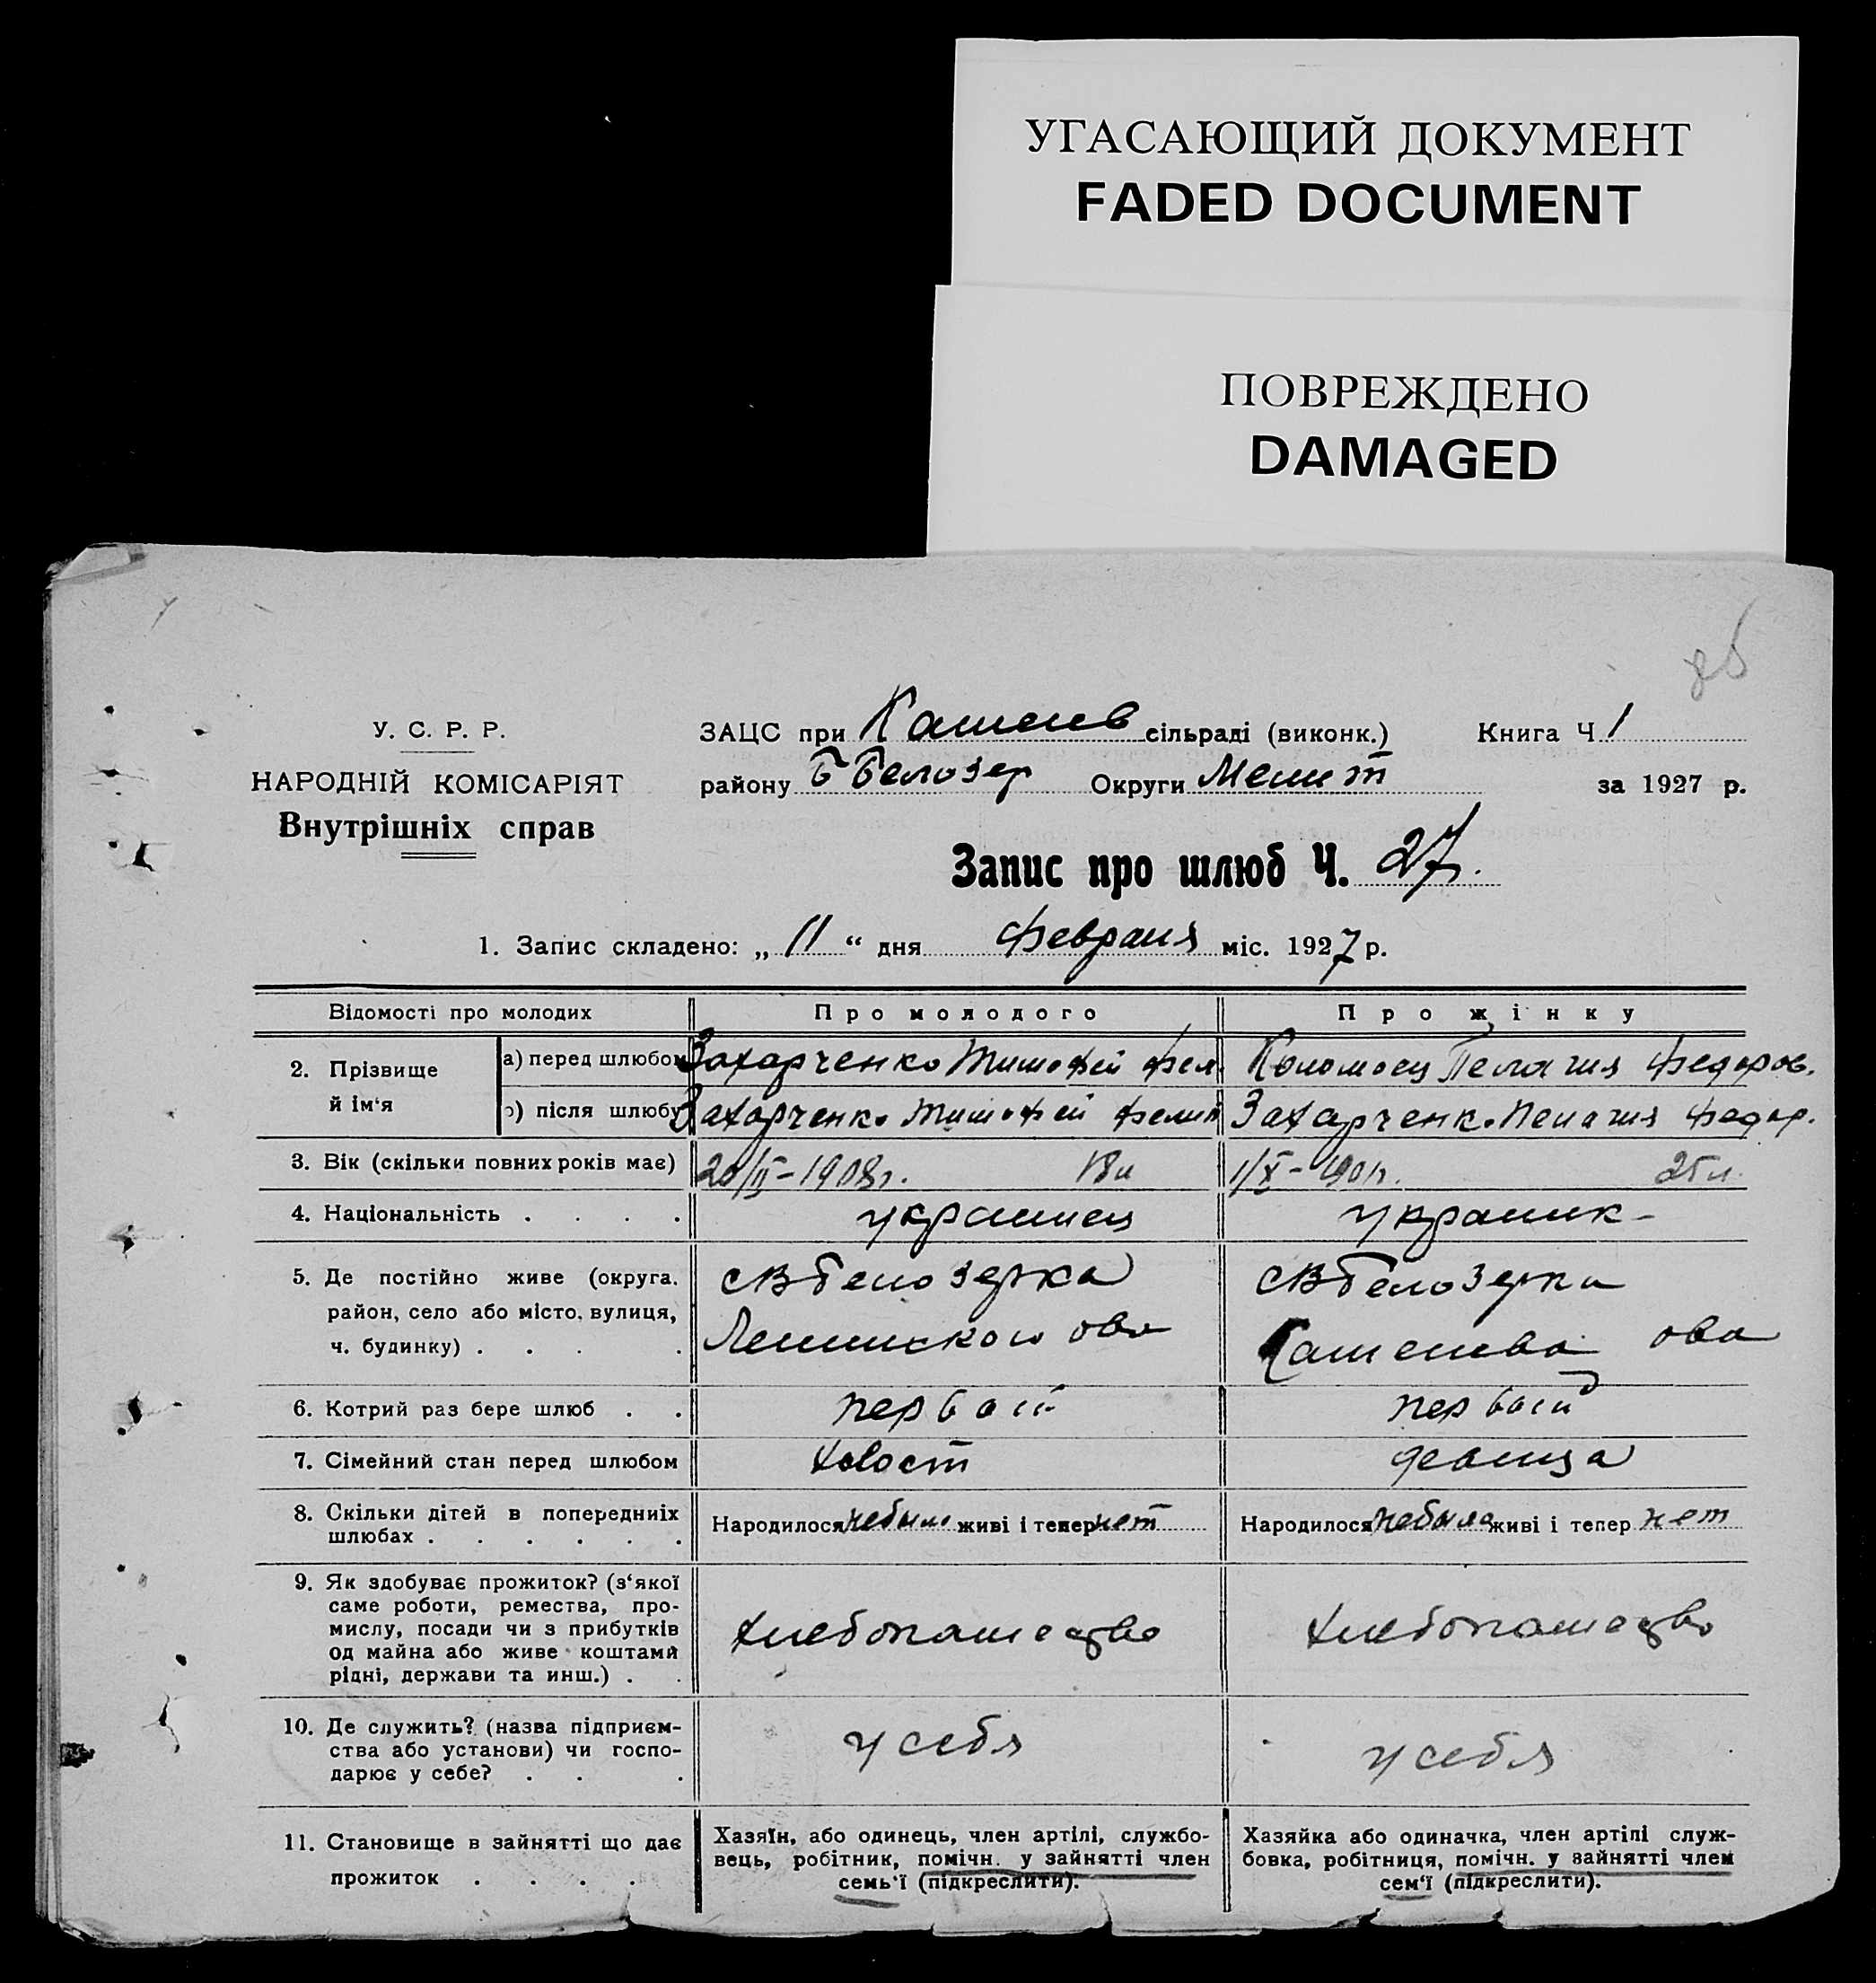 УГАСАЮЩИЙ ДОКУМЕНТ
FADED DOCUMENT
ПОВРЕЖДЕНО
DAMAGED
У. С. Р. Р.
НАРОДНІЙ КОМІСАРІЯТ
Внутрішніх справ
ЗАЦС при Кашеев сільраді (виконк.) Книга Ч 1
району Б Белозер Округи Мелит за 1927 р.
Запис про шлюб Ч. 27.
1. Запис складено: „ 11 “ дня февраля міс. 1927 р.
Відомості про молодих Про молодого Про жінку
2. Прізвище й ім‘я
а) перед шлюбом Захарченко Тимофей Фел. Коломоец Пелагия Федоров.
б) після шлюбу Захарченко Тимофей Фелит Захарченко Пелагия Федор.
3. Вік (скільки повних років має) 20/II-1908г. 18л 1/X-1901г. 25л.
4. Національність . . . . украинец украинк-
5. Де постійно живе (округа, район, село або місто, вулиця, ч. будинку) . . . .
с В Белозерка
Ленинского ова
с В Белозерка
ова
6. Котрий раз бере шлюб . . первый первый
7. Сімейний стан перед шлюбом холост девица
8. Скільки дітей в попередніх шлюбах . . . . . .
Народилося небыло живі і тепер нет
Народилося небыло живі і тепер нет
9. Як здобуває прожиток? (з‘якої
саме роботи, ремества, про-
мислу, посади чи з прибутків
од майна або живе коштами
рідні, держави та инш.) . .
хлебопашество хлебопашество
10. Де служить? (назва підприєм-
ства або установи) чи госпо-
дарює у себе? . . .
у себя у себя
11. Становище в зайнятті що дає
прожиток . . . .
Хазяїн, або одинець, член артілі, службо-
вець, робітник, помічн. у зайнятті член
семь‘ї (підкреслити).
Хазяйка або одиначка, член артілі служ-
бовка, робітниця, помічн. у зайнятті член
сем‘ї (підкреслити).